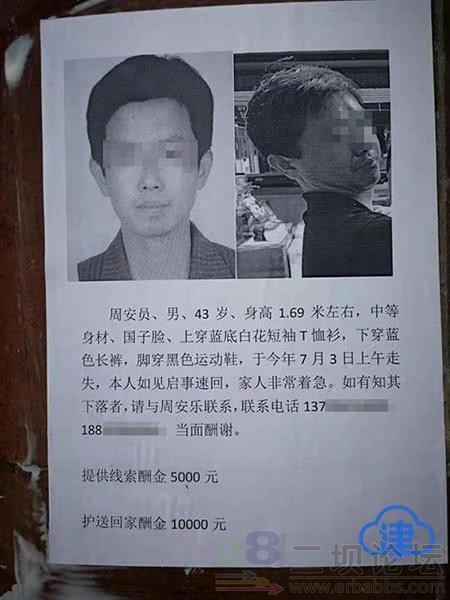 周安员、男、43 岁、身高 1.69 米左右，中等
身材、国子脸、上穿蓝底白花短袖 T 恤衫，下穿蓝
色长裤，脚穿黑色运动鞋，于今年 7 月 3 日上午走
失，本人如见启事速回，家人非常着急。如有知其
下落者，请与周安乐联系，联系电话 137
188 当面酬谢。
提供线索酬金 5000 元
护送回家酬金 10000 元
津
28二坝论坛
www.erbabbs.com